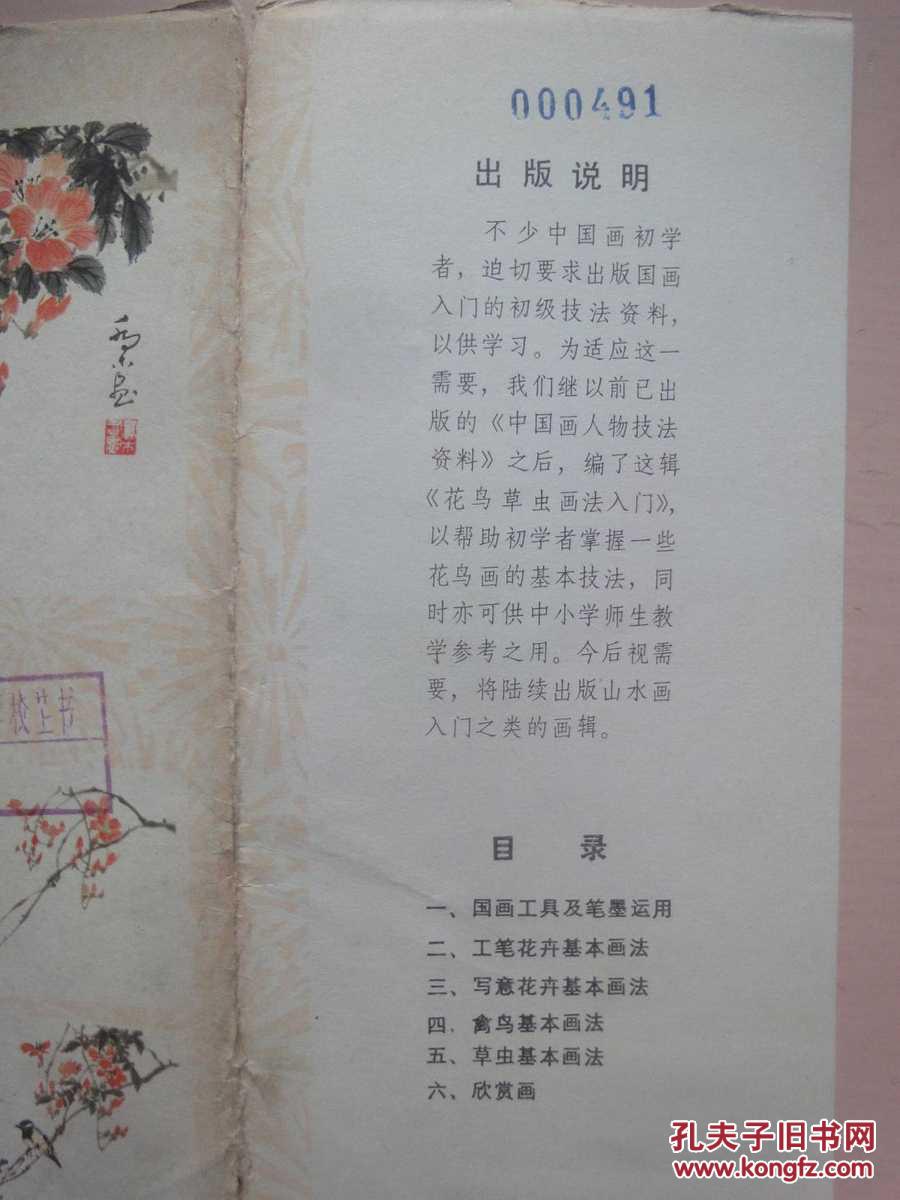 000491
出版说明
不少中国画初学
者，迫切要求出版国画
入门的初级技法资料，
以供学习。为适应这一
需要，我们继以前已出
版的《中国画人物技法
资料》之后，编了这辑
《花鸟草虫画法入门》，
以帮助初学者掌握一些
花鸟画的基本技法，同
时亦可供中小学师生教
学参考之用。今后视需
要，将陆续出版山水画
入门之类的画辑。
目 录
一、国画工具及笔墨运用
二、工笔花卉基本画法
三、写意花卉基本画法
四、禽鸟基本画法
五、草虫基本画法
六、欣赏画
孔夫子旧书网
www.kongfz.com